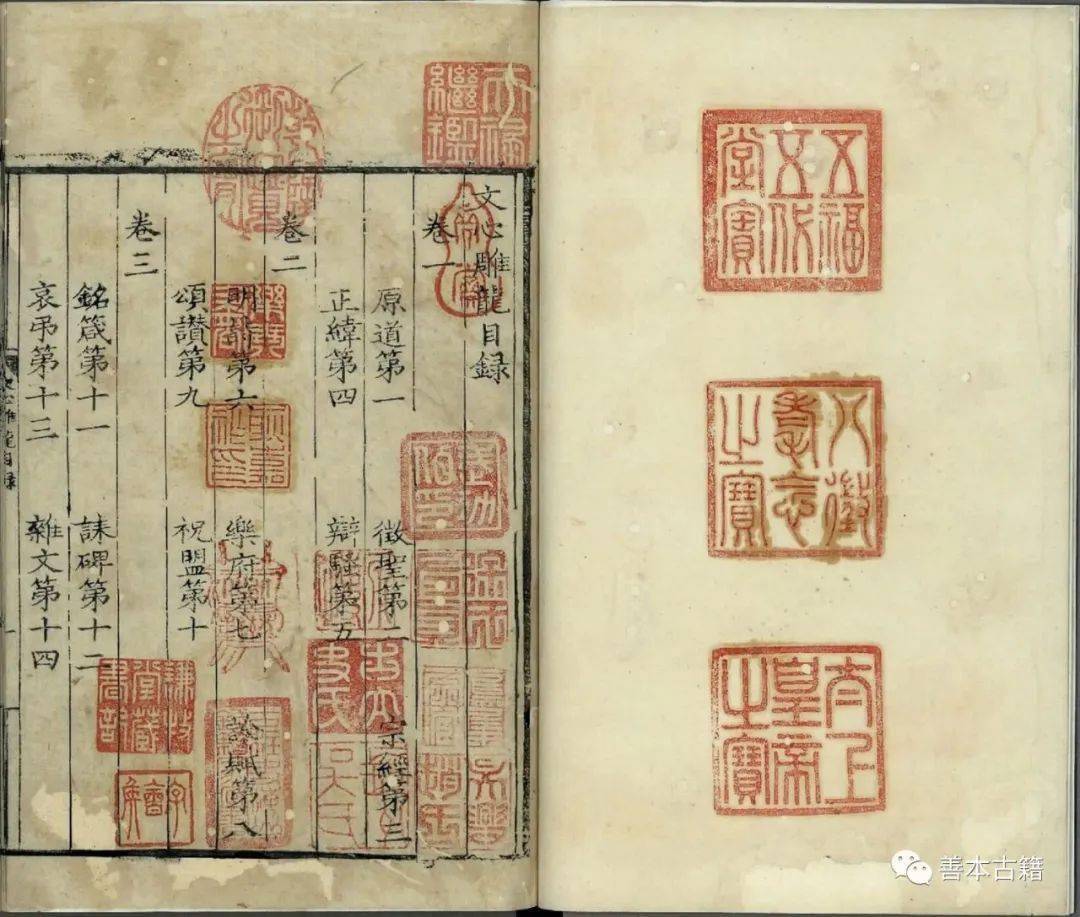 五福五代堂寶
八徵耄念之寶
太上皇帝之寶
天禄繼鑑
乾隆御覽之寶
文心雕龍目録
卷一
原道第一 徵聖第二 宗經第三
正緯第四 辯騷第五
卷二
明詩第六 樂府第七 詮賦第八
頌讚第九 祝盟第十
卷三
銘箴第十一 誄碑第十二
哀吊第十三 雜文第十四
謙牧堂藏書記
善本古籍